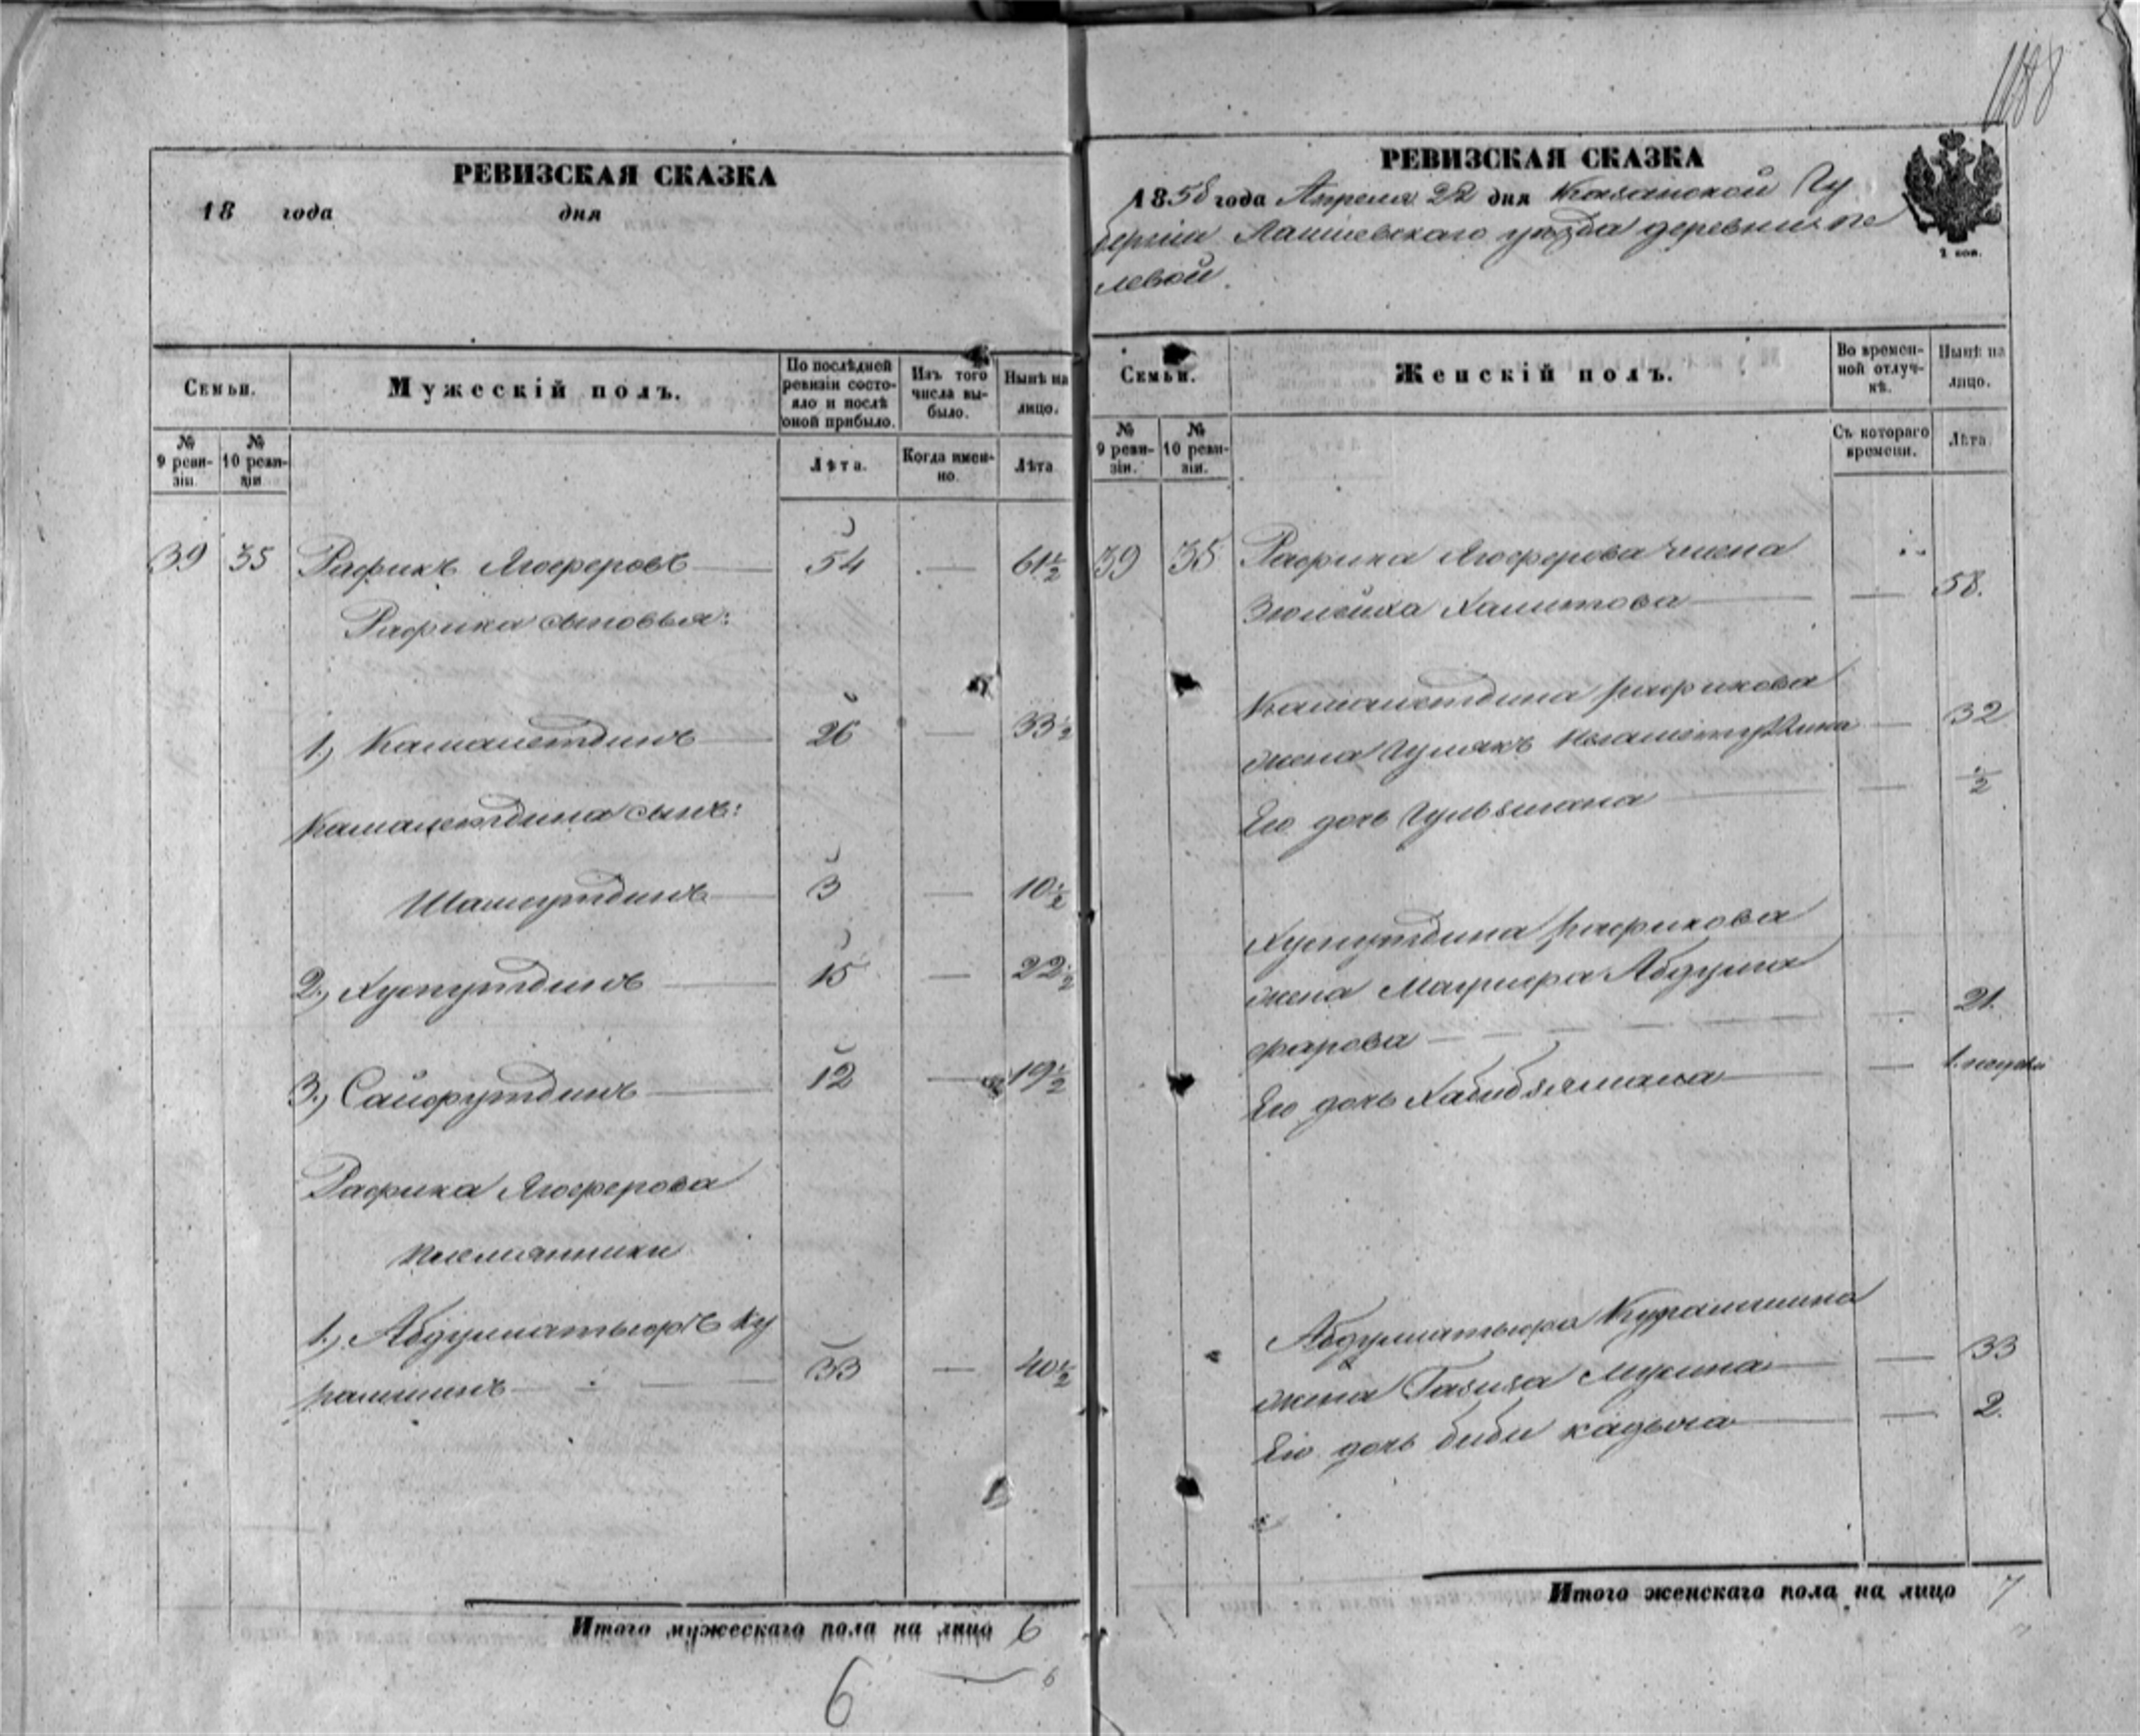 РЕВИЗСКАЯ СКАЗКА
18 года дня
Семьи.
Мужескій полъ.
По послѣдней ревизіи состояло и послѣ оной прибыло.
Изъ того числа выбыло.
Нынѣ на лицо.
№ 9 ревизіи.
№ 10 ревизіи
Лѣта.
Когда именно.
Лѣта
39 35 Рафикъ Ягоферовъ 54 — 61½
Рафика сыновья:
1, Камалетдинъ 26 — 33½
Камалетдина сынъ:
Шамсутдинъ 3 — 10½
2, Хуснутдинъ 15 — 22½
3, Сайфутдинъ 12 — 19½
Рафика Ягоферова
племянники
1, Абдуллатыфъ Ку
рамшинъ 33 — 40½
Итого мужескаго пола на лицо 6
6
6
1188
РЕВИЗСКАЯ СКАЗКА
1858 года Апреля 22 дня Казанской Гу
берніи Лаишевскаго уѣзда деревни
левой.
Семьи.
Женскій полъ.
Во временной отлучкѣ.
Нынѣ на лицо.
№ 9 ревизіи.
№ 10 ревизіи.
Съ котораго времени.
Лѣта.
39 35 Рафика Ягоферова жена
Зюлейха Хамитова — 58.
Камалетдина рафикова
жена — 32
Его дочь — ½
Хуснутдина рафикова
жена Абдулга
фарова — 21.
Его дочь Хабибямала —
Абдуллатыфа Курамшина
жена Газиза Мусина — 33
Его дочь биби кадыча — 2.
Итого женскаго пола на лицо 7